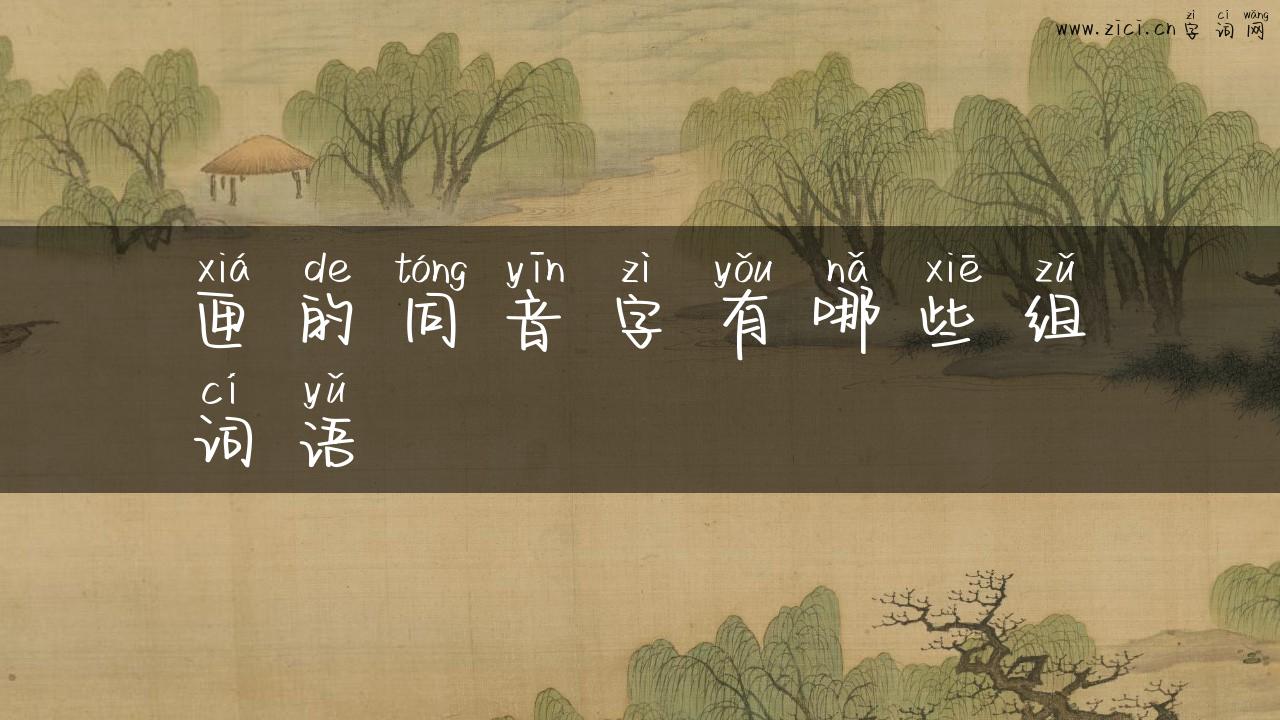 zì cí wǎng
www.zici.cn 字词网
xiá de tóng yīn zì yǒu nǎ xiē zǔ
匣的同音字有哪些组
cí yǔ
词语